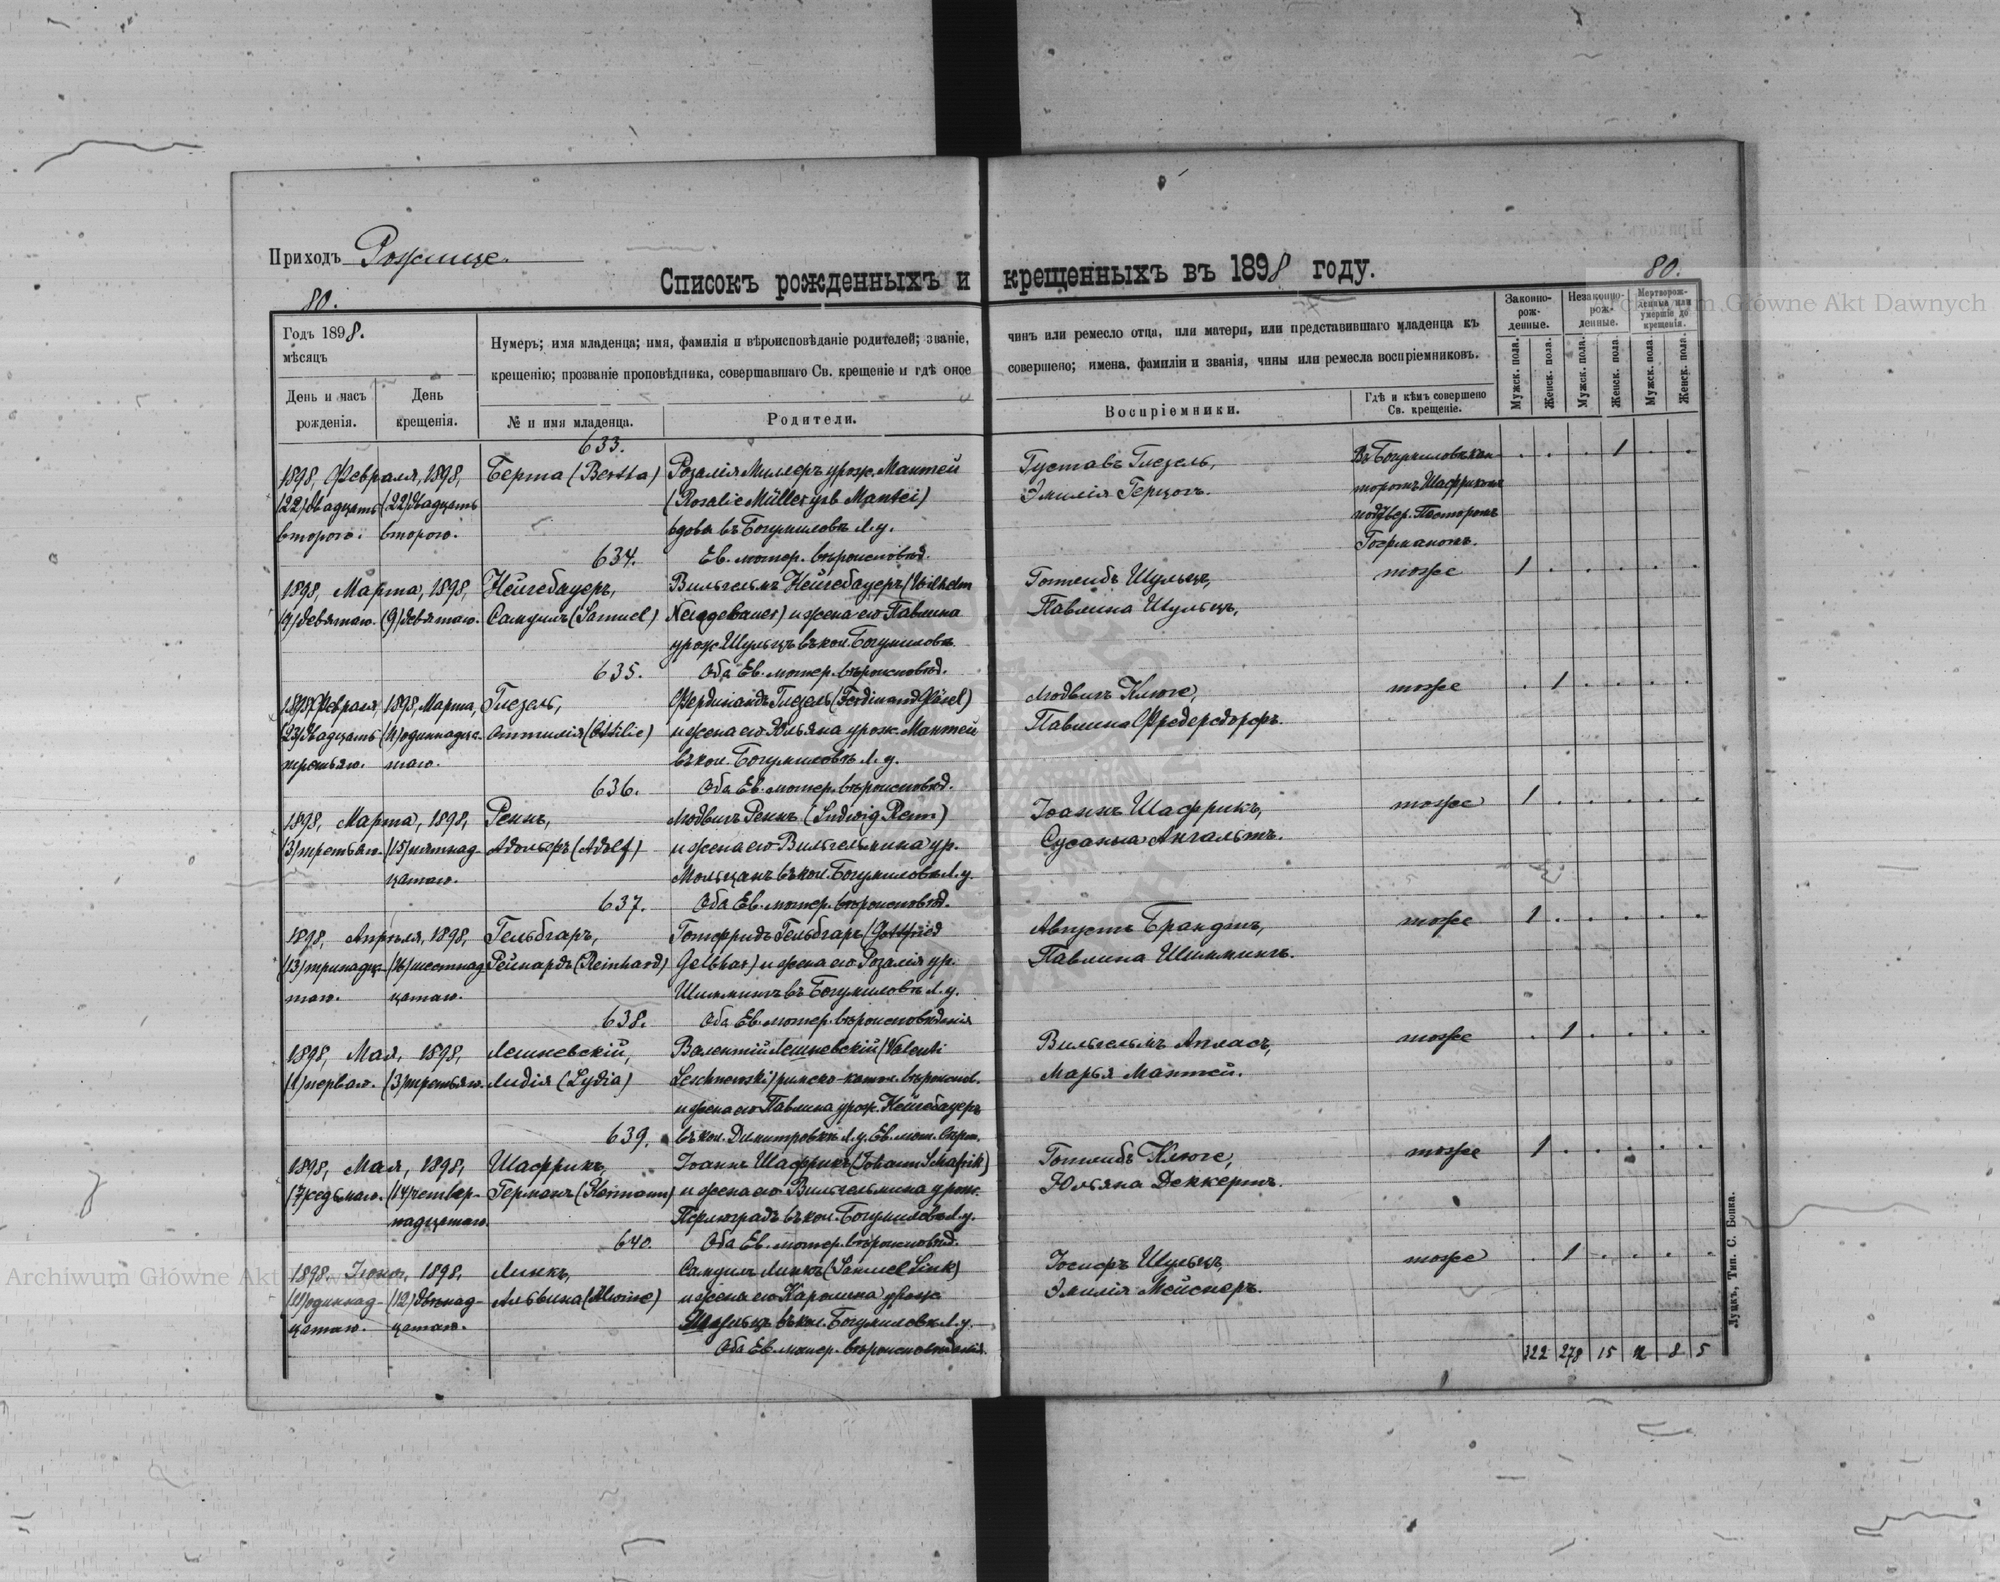 Приходъ Рожище.
Списокъ рожденныхъ и крещенныхъ въ 1898 году.
80.
80.
Archiwum Główne Akt Dawnych
Годъ 1898.
мѣсяцъ
День и часъ рожденія.
День крещенія.
Нумеръ; имя младенца; имя, фамилія и вѣроисповѣданіе родителей; званіе, чинъ или ремесло отца, или матери, или представившаго младенца къ
крещенію; прозваніе проповѣдника, совершавшаго Св. крещеніе и гдѣ оное совершено; имена, фамиліи и званія, чины или ремесла воспріемниковъ.
№ и имя младенца.
Родители.
Воспріемники.
Гдѣ и кѣмъ совершено Св. крещеніе.
Законно-рож-денные.
Незаконно-рож-денные.
Мертворож-денные или умершіе до крещенія.
Мужск. пола.
Женск. пола.
Мужск. пола.
Женск. пола.
Мужск. пола.
Женск. пола.
633.
1898, Февраля, 1898, Берта (Bertha) Розалія Миллеръ урож. Мантей Густавъ Гизель, 1
(22) двадцать (22) двадцать (Rosalie Müller geb Mantei) Эмилія Герцогъ.
второго. второго. вдова въ Богумиловкѣ Л. у.
634. Ев. лютер. вѣроисповѣд.
1898, Марта, 1898, Нейгебауеръ, Вильгельмъ Нейгебауеръ (Wilhelm Готлибъ Шульцъ, тоже 1
(9) девятаго. (9) девятаго. Самуилъ (Samuel) Neugebauer) и жена его Павлина Павлина Шульцъ,
урож. Шульцъ въ кол. Богумиловкѣ
635. Оба Ев. лютер. вѣроисповѣд.
Февраля, 1898, Марта, Гизель, Фердинандъ Гизель (Ferdinand Людвигъ Клюге, тоже 1
(23) двадцать (11) одиннадца- Оттилія (Ottilie) и жена его Юльяна урож. Мантей Павлина Фредерсдорфъ.
третьяго. таго. въ кол. Богумиловкѣ Л. у.
636. Оба Ев. лютер. вѣроисповѣд.
1898, Марта, 1898, Реннъ, Людвигъ Реннъ (Ludwig Renn) Іоаннъ Шафрикъ, тоже 1
(3) третьяго. (15) пятнад- Адольфъ (Adolf) и жена его Вильгельмина ур. Сусанна Ангальтъ.
цатаго. въ кол. Богумиловкѣ Л. у.
637. Оба Ев. лютер. вѣроисповѣд.
1898, Апрѣля, 1898, Гельбгаръ, Готфридъ Гельбгаръ (Gottfried Августъ Брандтъ, тоже 1
(13) тринадца- (16) шестнад- Рейнардъ (Reinhard) Gelbhar) и жена его Розалія ур. Павлина Шиммингъ.
таго. цатаго. въ Богумиловкѣ Л. у.
638. Оба Ев. лютер. вѣроисповѣданія
1898, Мая, 1898, Лешневскій, Валентій Лешневскій (Valenti Вильгельмъ Атласъ, тоже 1
(1) перваго. (3) третьяго. Лидія (Lydia) Leschnewski) римско-катол. вѣроиспов. Марья Мантей.
и жена его Павлина урож. Нейгебауеръ
639. въ кол. Димитровкѣ Л. у. Ев. лют.
1898, Мая, 1898, Шафрикъ, Іоаннъ Шафрикъ (Johann Schafrik) Готлибъ Клюге, тоже 1
(7) седьмаго. (14) четыр- Германъ (Hermann) и жена его Вильгельмина урож. Юльяна Деккертъ.
надцатаго. въ кол. Богумиловкѣ Л. у.
640. Оба Ев. лютер. вѣроисповѣд.
1898, Іюня, 1898, Линкъ, Самуилъ Линкъ (Samuel Link) Іосифъ Шульцъ, тоже 1
(11) одиннад- (12) двѣнад- Альвина (Alwine) и жена его Каролина урож. Эмилія Мейснеръ.
цатаго. цатаго. въ кол. Богумиловкѣ Л. у.
Оба Ев. лютер. вѣроисповѣданія.
322 278 15 8 5
Луцкъ, Тип. С. Бонка.